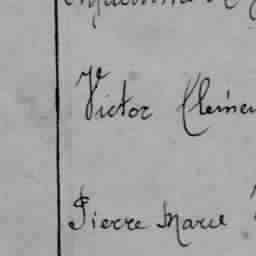 Victor Clémen
Pierre Marie